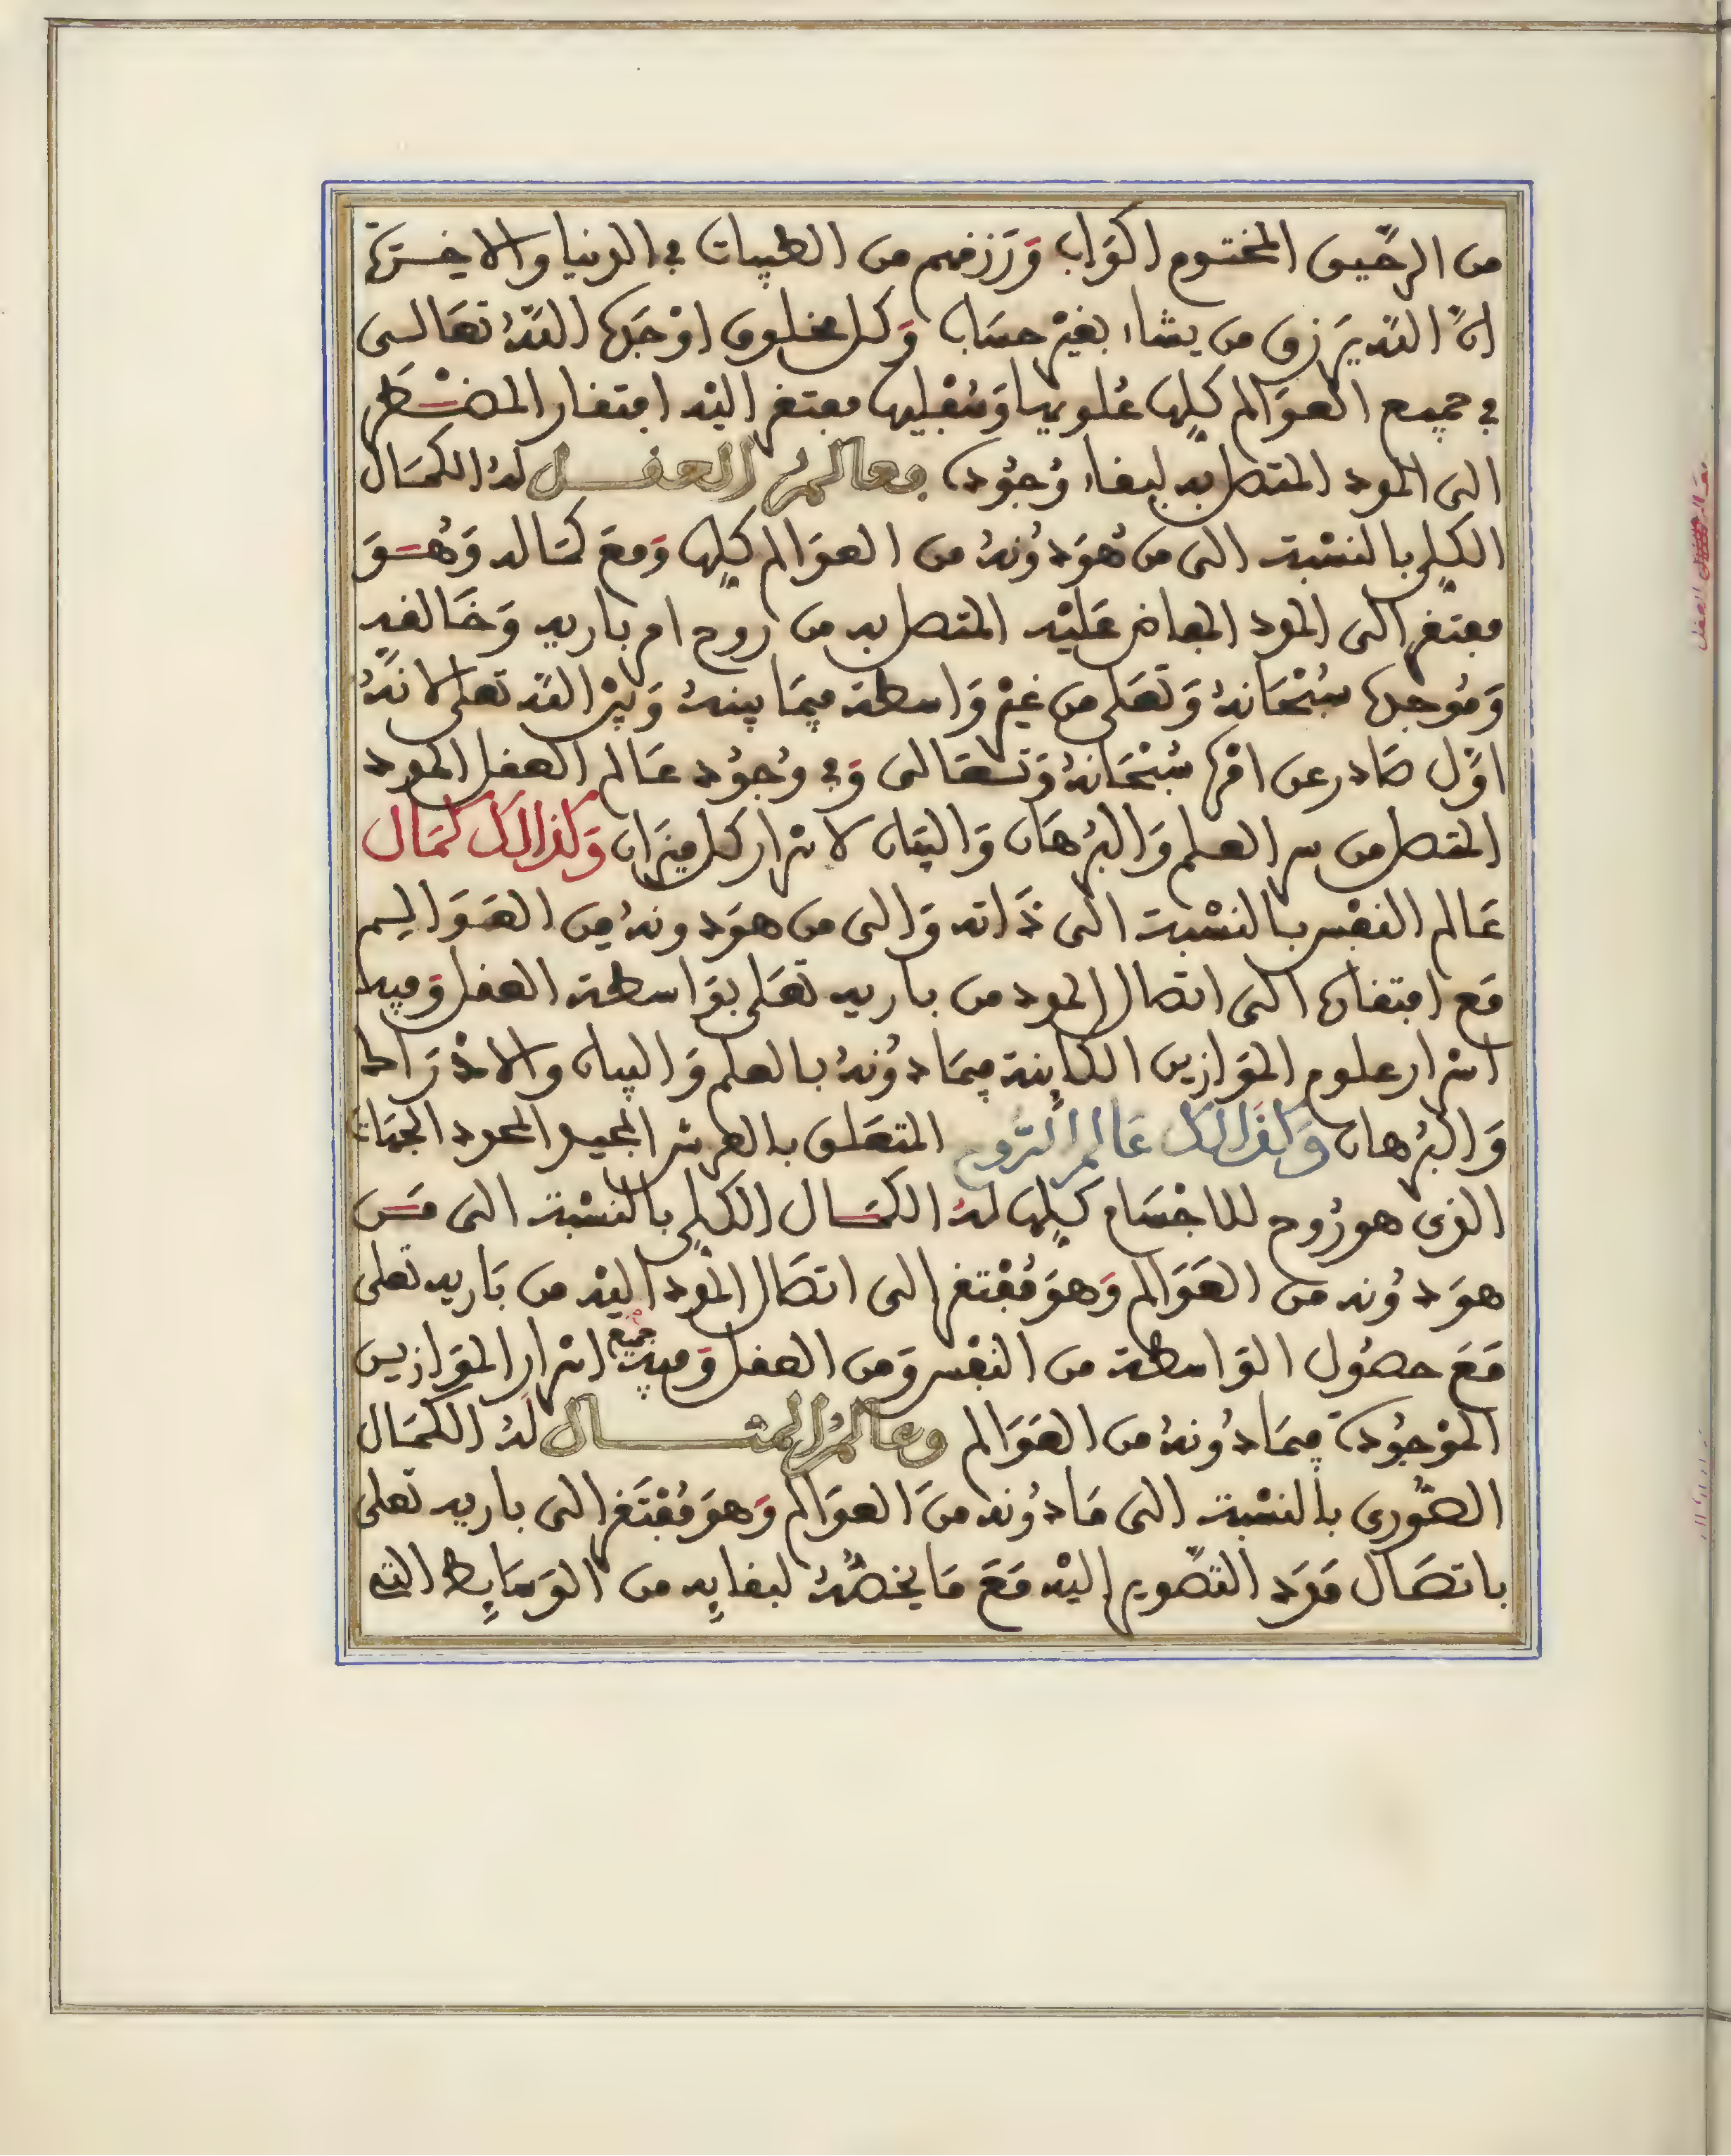 من الرحيق المختوم اكواب وَرَزقهم من الطيبات في الدنيا والاخـرة
انّ اللّه يَرزق من يشاء بغيْر حسَاب وَكل مخلوق اوْجَده اللّهُ تعَالـى
في جميع العوَالم كلِّها عُلويها وَسُفْليها مفتقر اليْه افتقار المضْـطَر
الى المدد المتصل به لبقاء وُجوُده فعالمُ العقـل لهُ الكمَال
الكلِّي بالنسْبة الى من هُوَ دُونهُ من العوَالم كلِّها وَمعَ كمَاله وَهُـوَ
مفتقر الى المدد المفاض عَليْه المتصل به من روح امر باريه وَخَالقه
وَمُوجده سُبْحَانهُ وَتَعَلى من غيْر وَاسطة فيمَا بينهُ وَبيْن اللّه تعلى لانّهُ
اوّل صَادر عن امْره سُبْحَانهُ وَتـعَالى وَفي وُجوُد عَالم العقل المدد
المتصل من سر العلم وَالبُرْهَان وَالبيَان لاسْرار كل ميزَان وَكذالك كمَال
عَالم النفْس بالنسْبة الى ذَاته وَالى من هوَ دونهُ مِن العَـوَالـم
مَع افتقاره الى اتصَال المدد من باريه تعَلى بوَاسطة العقل وَفيه
اسْرار علوم الموَازين الكاينة فيمَا دُونهُ بالعلم وَالبيان والادْرَاك
وَالبُرْهان وَكذَالك عَالمُ الرُّوح المتعَلق بالعرش المجيد المحدد الجهَات
الذى هو رُوح للاجْسَام كلِّها لهُ الكمَـال الكلِّي بالنسْبة الى مَـن
هوَ دُونه من العَوَالم وَهوَ مُفْتقر الى اتصَال المدد اليْه من بَاريه تعَلى
مَعَ حصُول الوَاسطة من النفْس وَمن العقل وَفيه جميع اسْرار الموَازين
الموْجوُدة فيمَا دُونهُ من العَوَالم وعالمُ المثـال لهُ الكمَال
الصُّورى بالنسْبة الى مَا دُونه منَ العوَالم وَهوَ مُفْتَقر الى باريه تعلى
باتصَال مَدَد التصّوير اليْه مَعَ مَا يخصُّهُ لبقايِه من الوَسَايِط التى